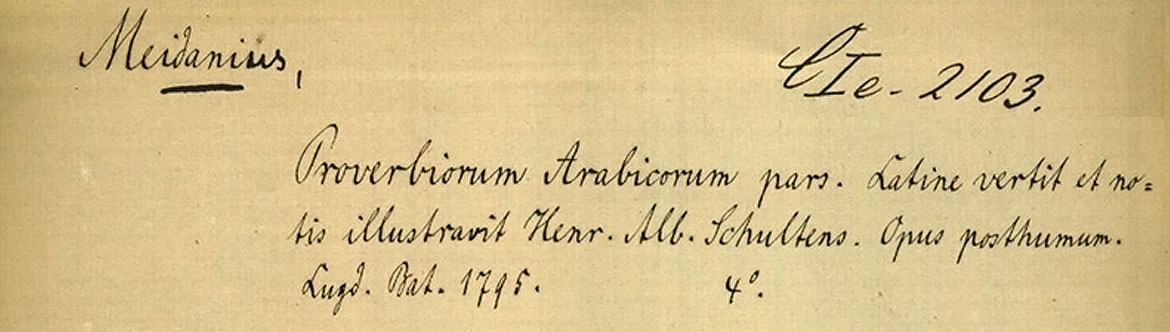 Meidanius,
CIe-2103.
Proverbiorum Arabicorum pars. Latine vertit et no=
tis illustravit Henr. Alb. Schultens. Opus posthumum.
Lugd. Bat. 1795. 4°.